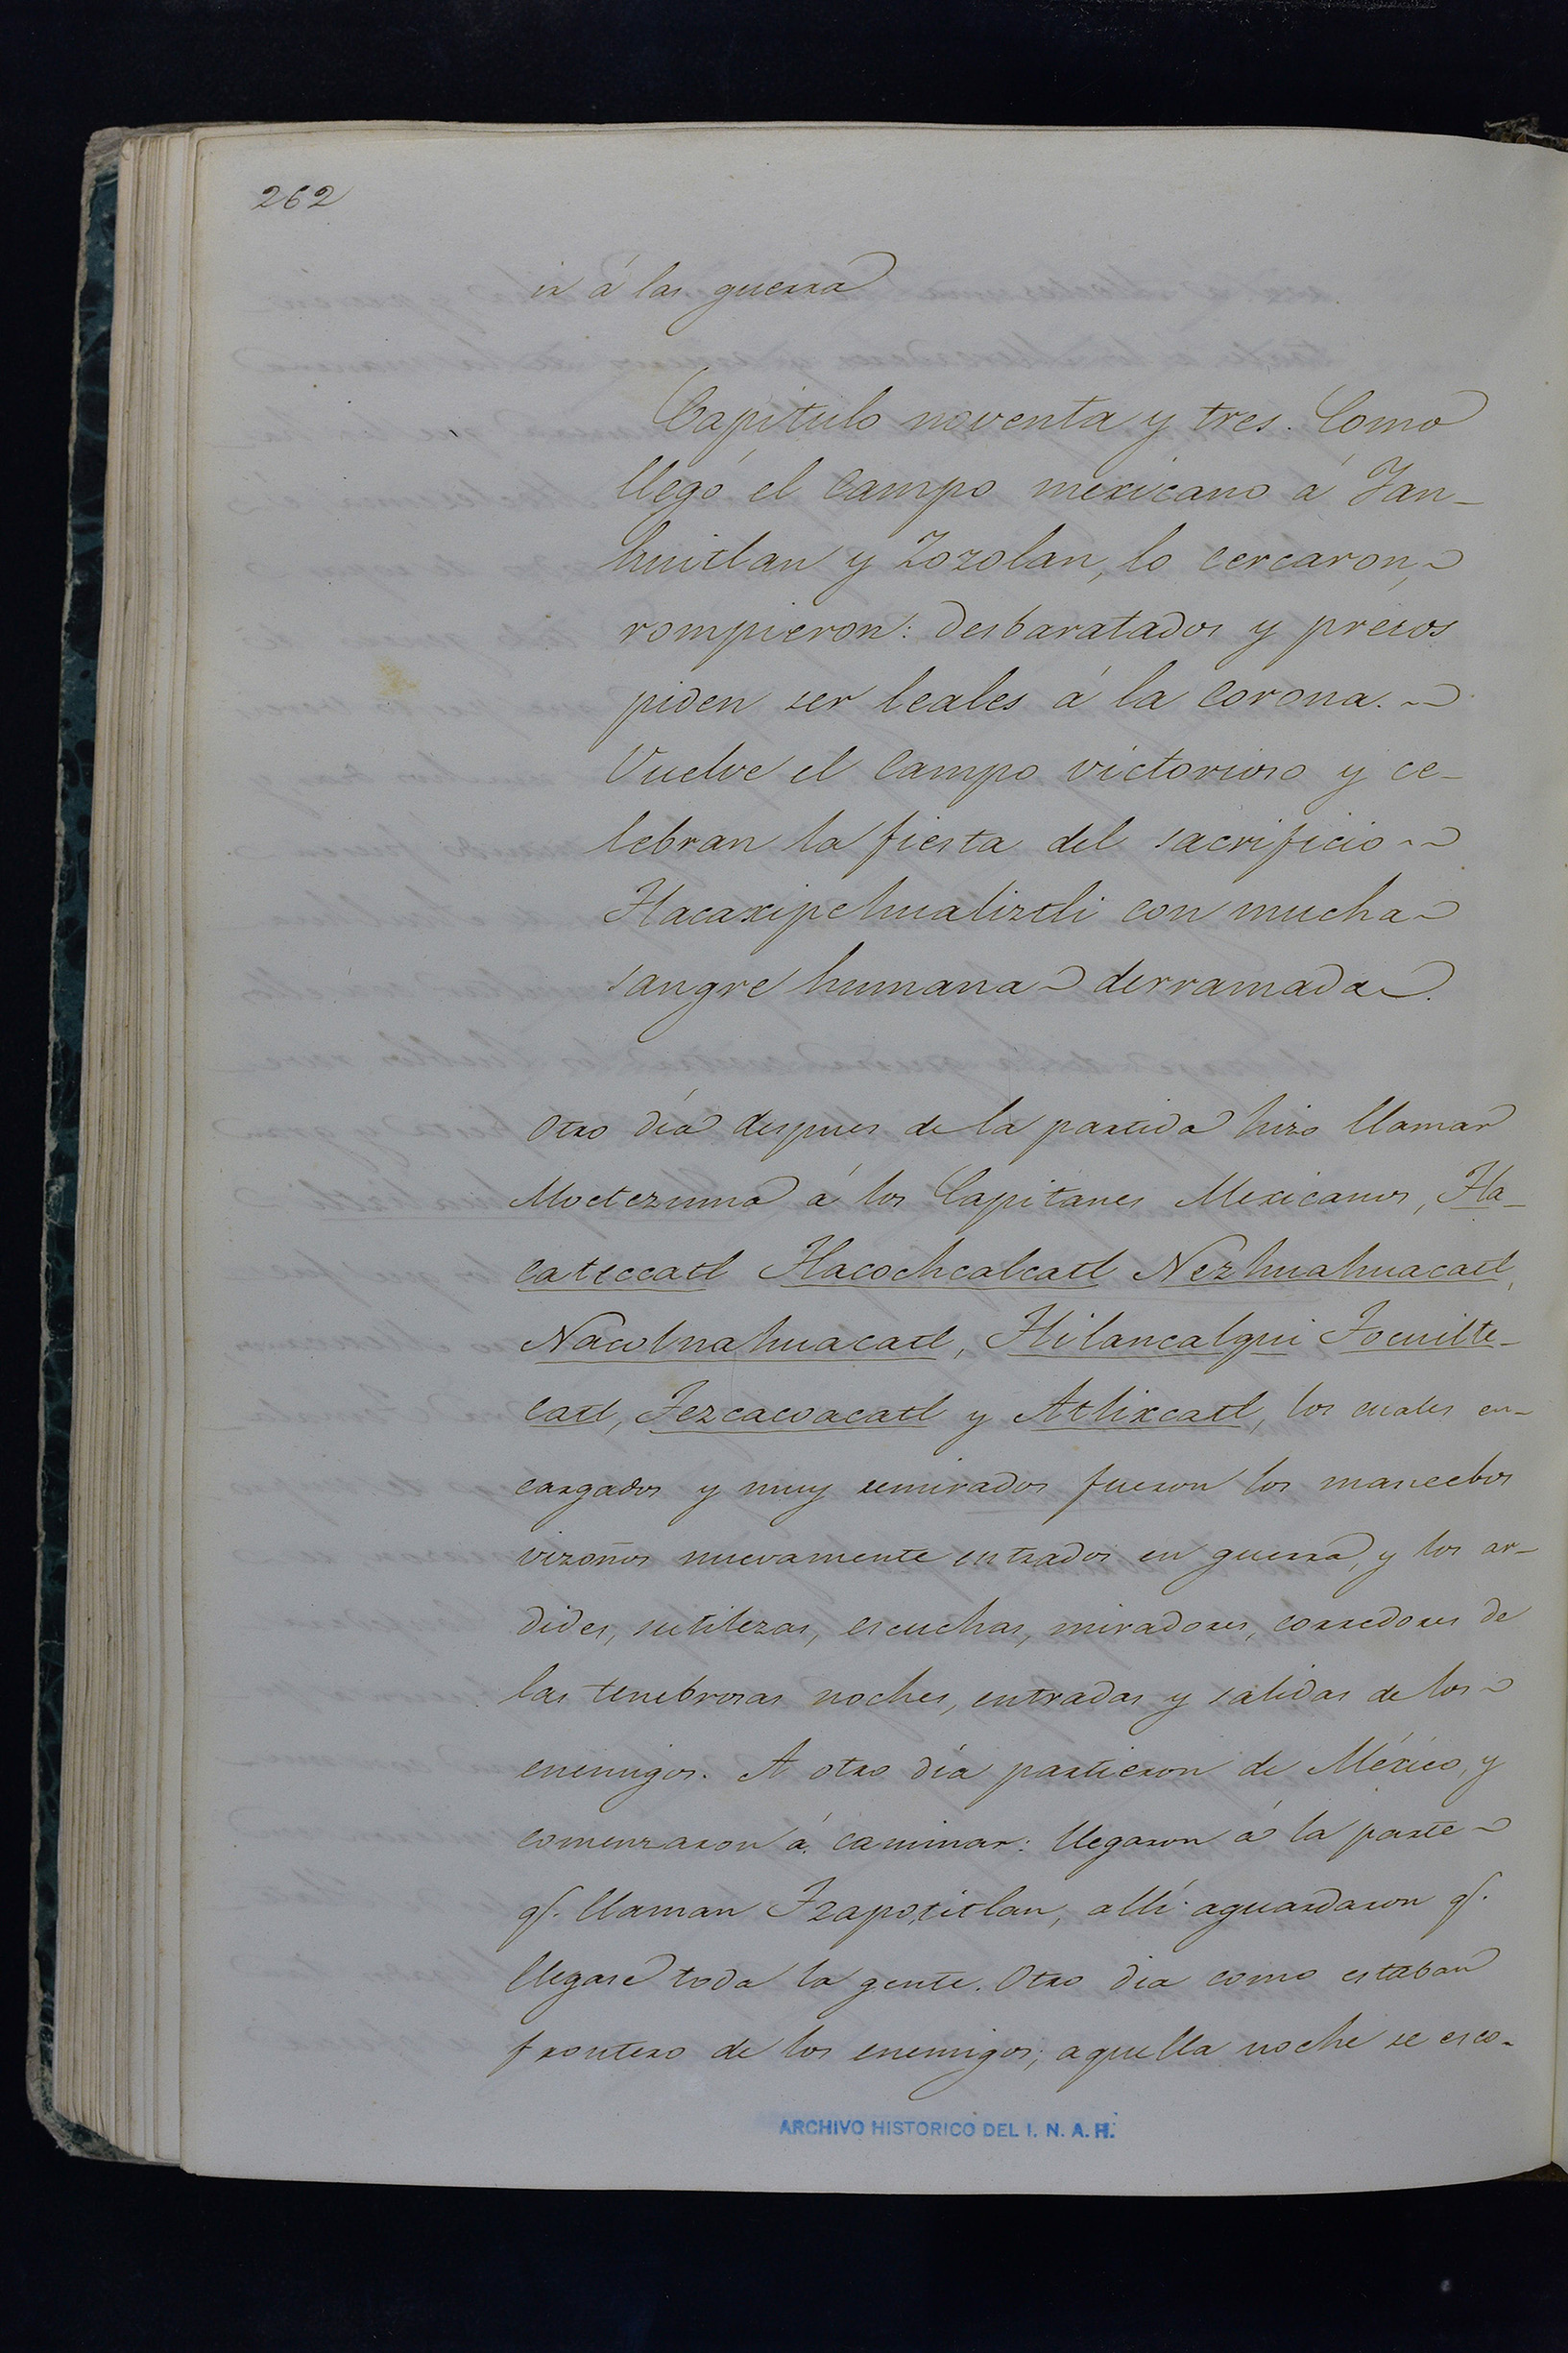 262
ir á las guerra
Capitulo noventa y tres. Como
llegó el Campo mexicano á Yan-
huitlan y Zozolan, lo cercaron,
rompieron: desbaratados y presos
piden ser leales á la corona.
Vuelve el Campo victorioso y ce-
lebran la fiesta del sacrificio
Tlacaxipehualiztli con mucha
sangre humana derramada.
Otro día despues de la partida hizo llamar
Moctezuma á los Capitanes Mexicanos, Tla-
cateccatl Tlacochcalcatl Nezhuahuacatl,
Nacolnahuacatl, Tlilancalqui Tocuilte-
catl, Tezcacoacatl y Atlixcatl, los cuales en-
cargados y muy remirados fueron los mancebos
vizoños nuevamente entrados en guerra, y los ar-
dides, sutilezas, escuchas, miradores, corredores de
las tenebrosas noches, entradas y salidas de los
enemigos. A otro día partieron de México, y
comenzaron á caminar: llegaron á la parte
q.e llaman Tzapotitlan, allí aguardaron q.e
llegase toda la gente. Otro dia como estaban
frontero de los enemigos; aquella noche se esco-
ARCHIVO HISTORICO DEL I. N. A. H.